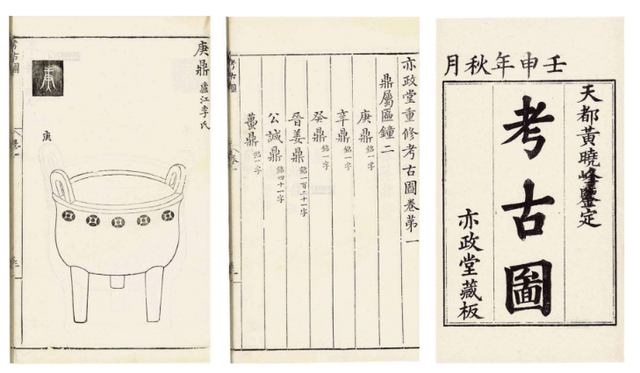 壬申年秋月
天都黃曉峰鑒定
考古圖
亦政堂藏板
亦政堂重修考古圖卷第一
鼎屬區鐘二
庚鼎 銘一字
辛鼎 銘一字
癸鼎 銘一字
晉姜鼎 銘一百二十一字
公諴鼎 銘四十一字
蠆鼎 銘一字
庚鼎 廬江李氏
庚
考古圖